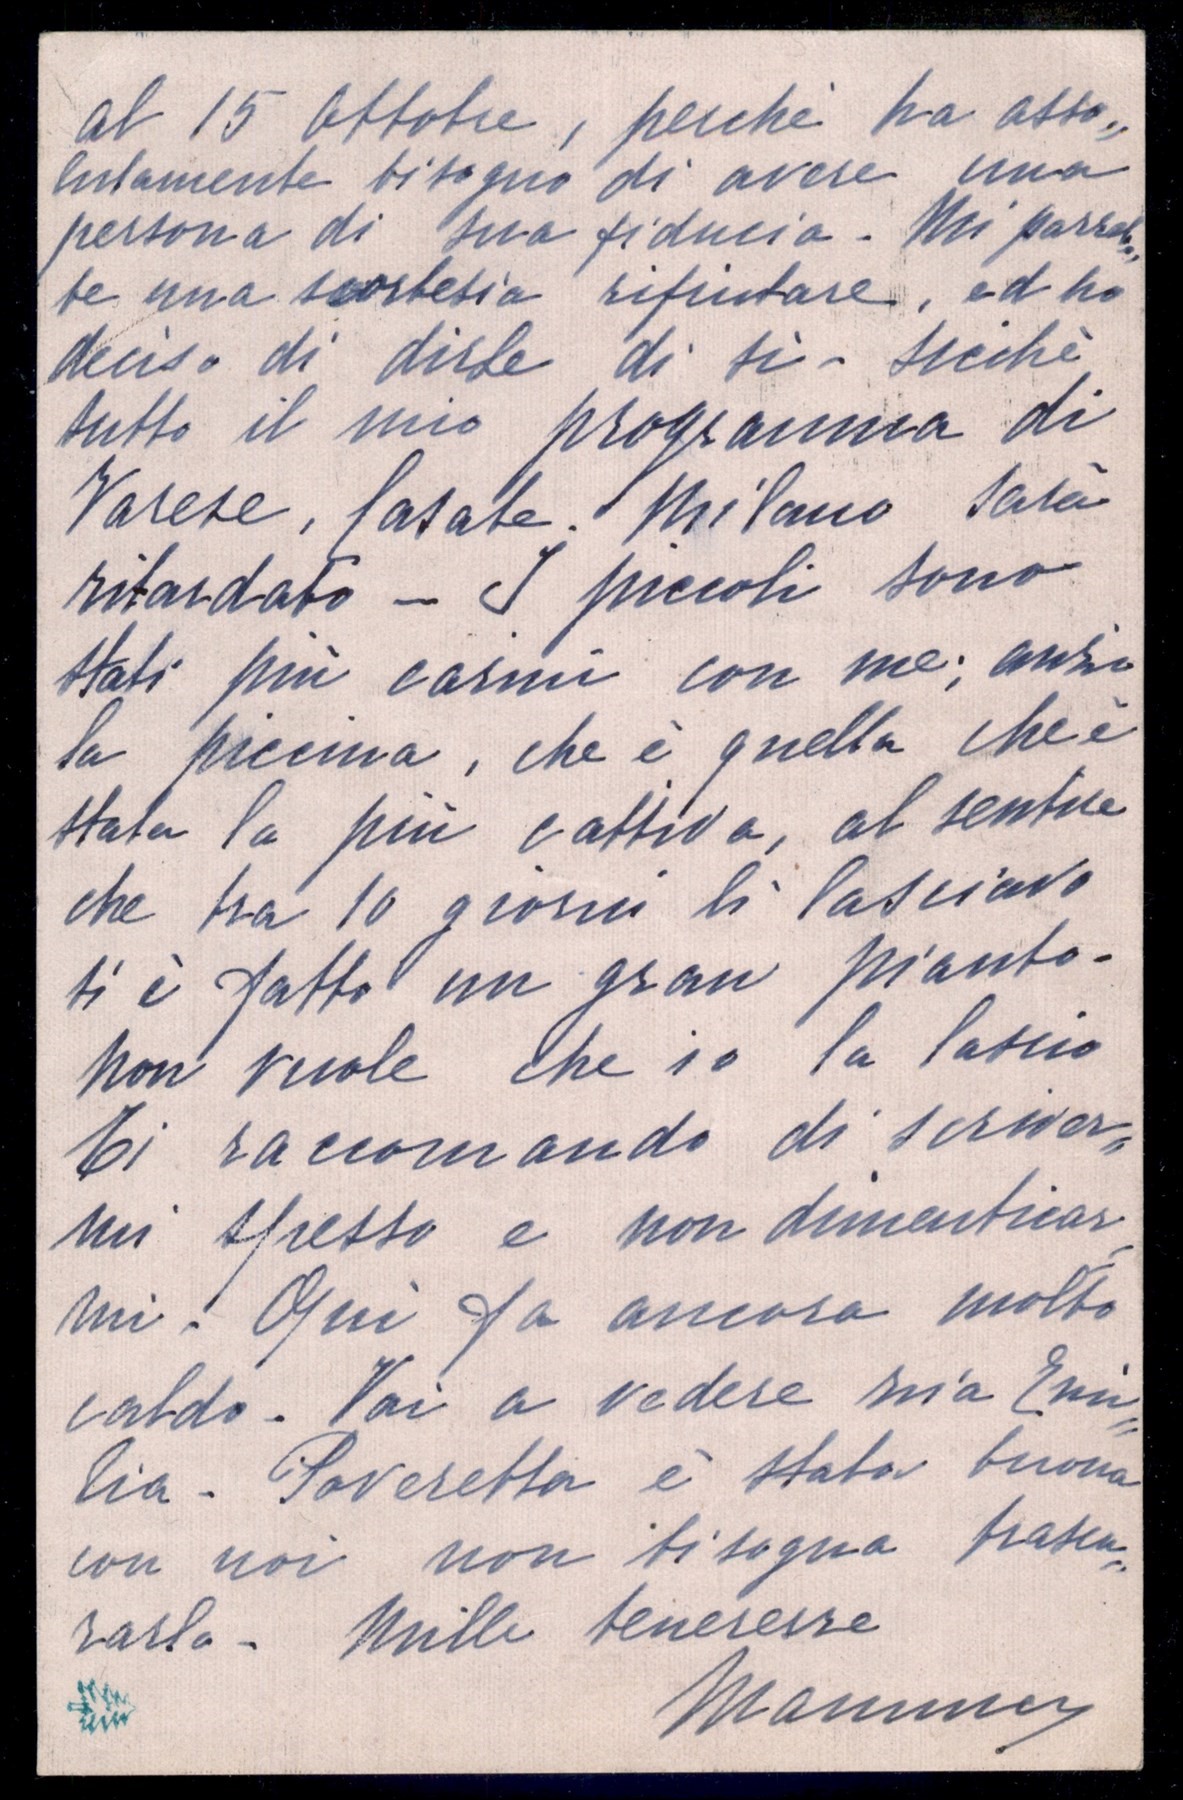 al 15 Ottobre, perchè ha asso„
lutamente bisogno di avere una
persona di sua fiducia. Mi parreb„
be una scortesia rifiutare, ed ho
deciso di dirle di sì - sicchè
tutto il mio programma di
Varese, Casate. Milano sarà
ritardato - I piccoli sono
stati più carini con me; anzi
la piccina, che è quella che è
stata la più cattiva, al sentire
che tra 10 giorni li lasciavo
si è fatto un gran pianto -
non vuole che io la lascio
Ti raccomando di scriver„
mi spesso e non dimenticar„
mi. Qui fa ancora molto
caldo. Vai a vedere zia Emi„
lia - Poveretta è stata buona
con noi non bisogna trascu„
rarla - Mille tenerezze
Mamma